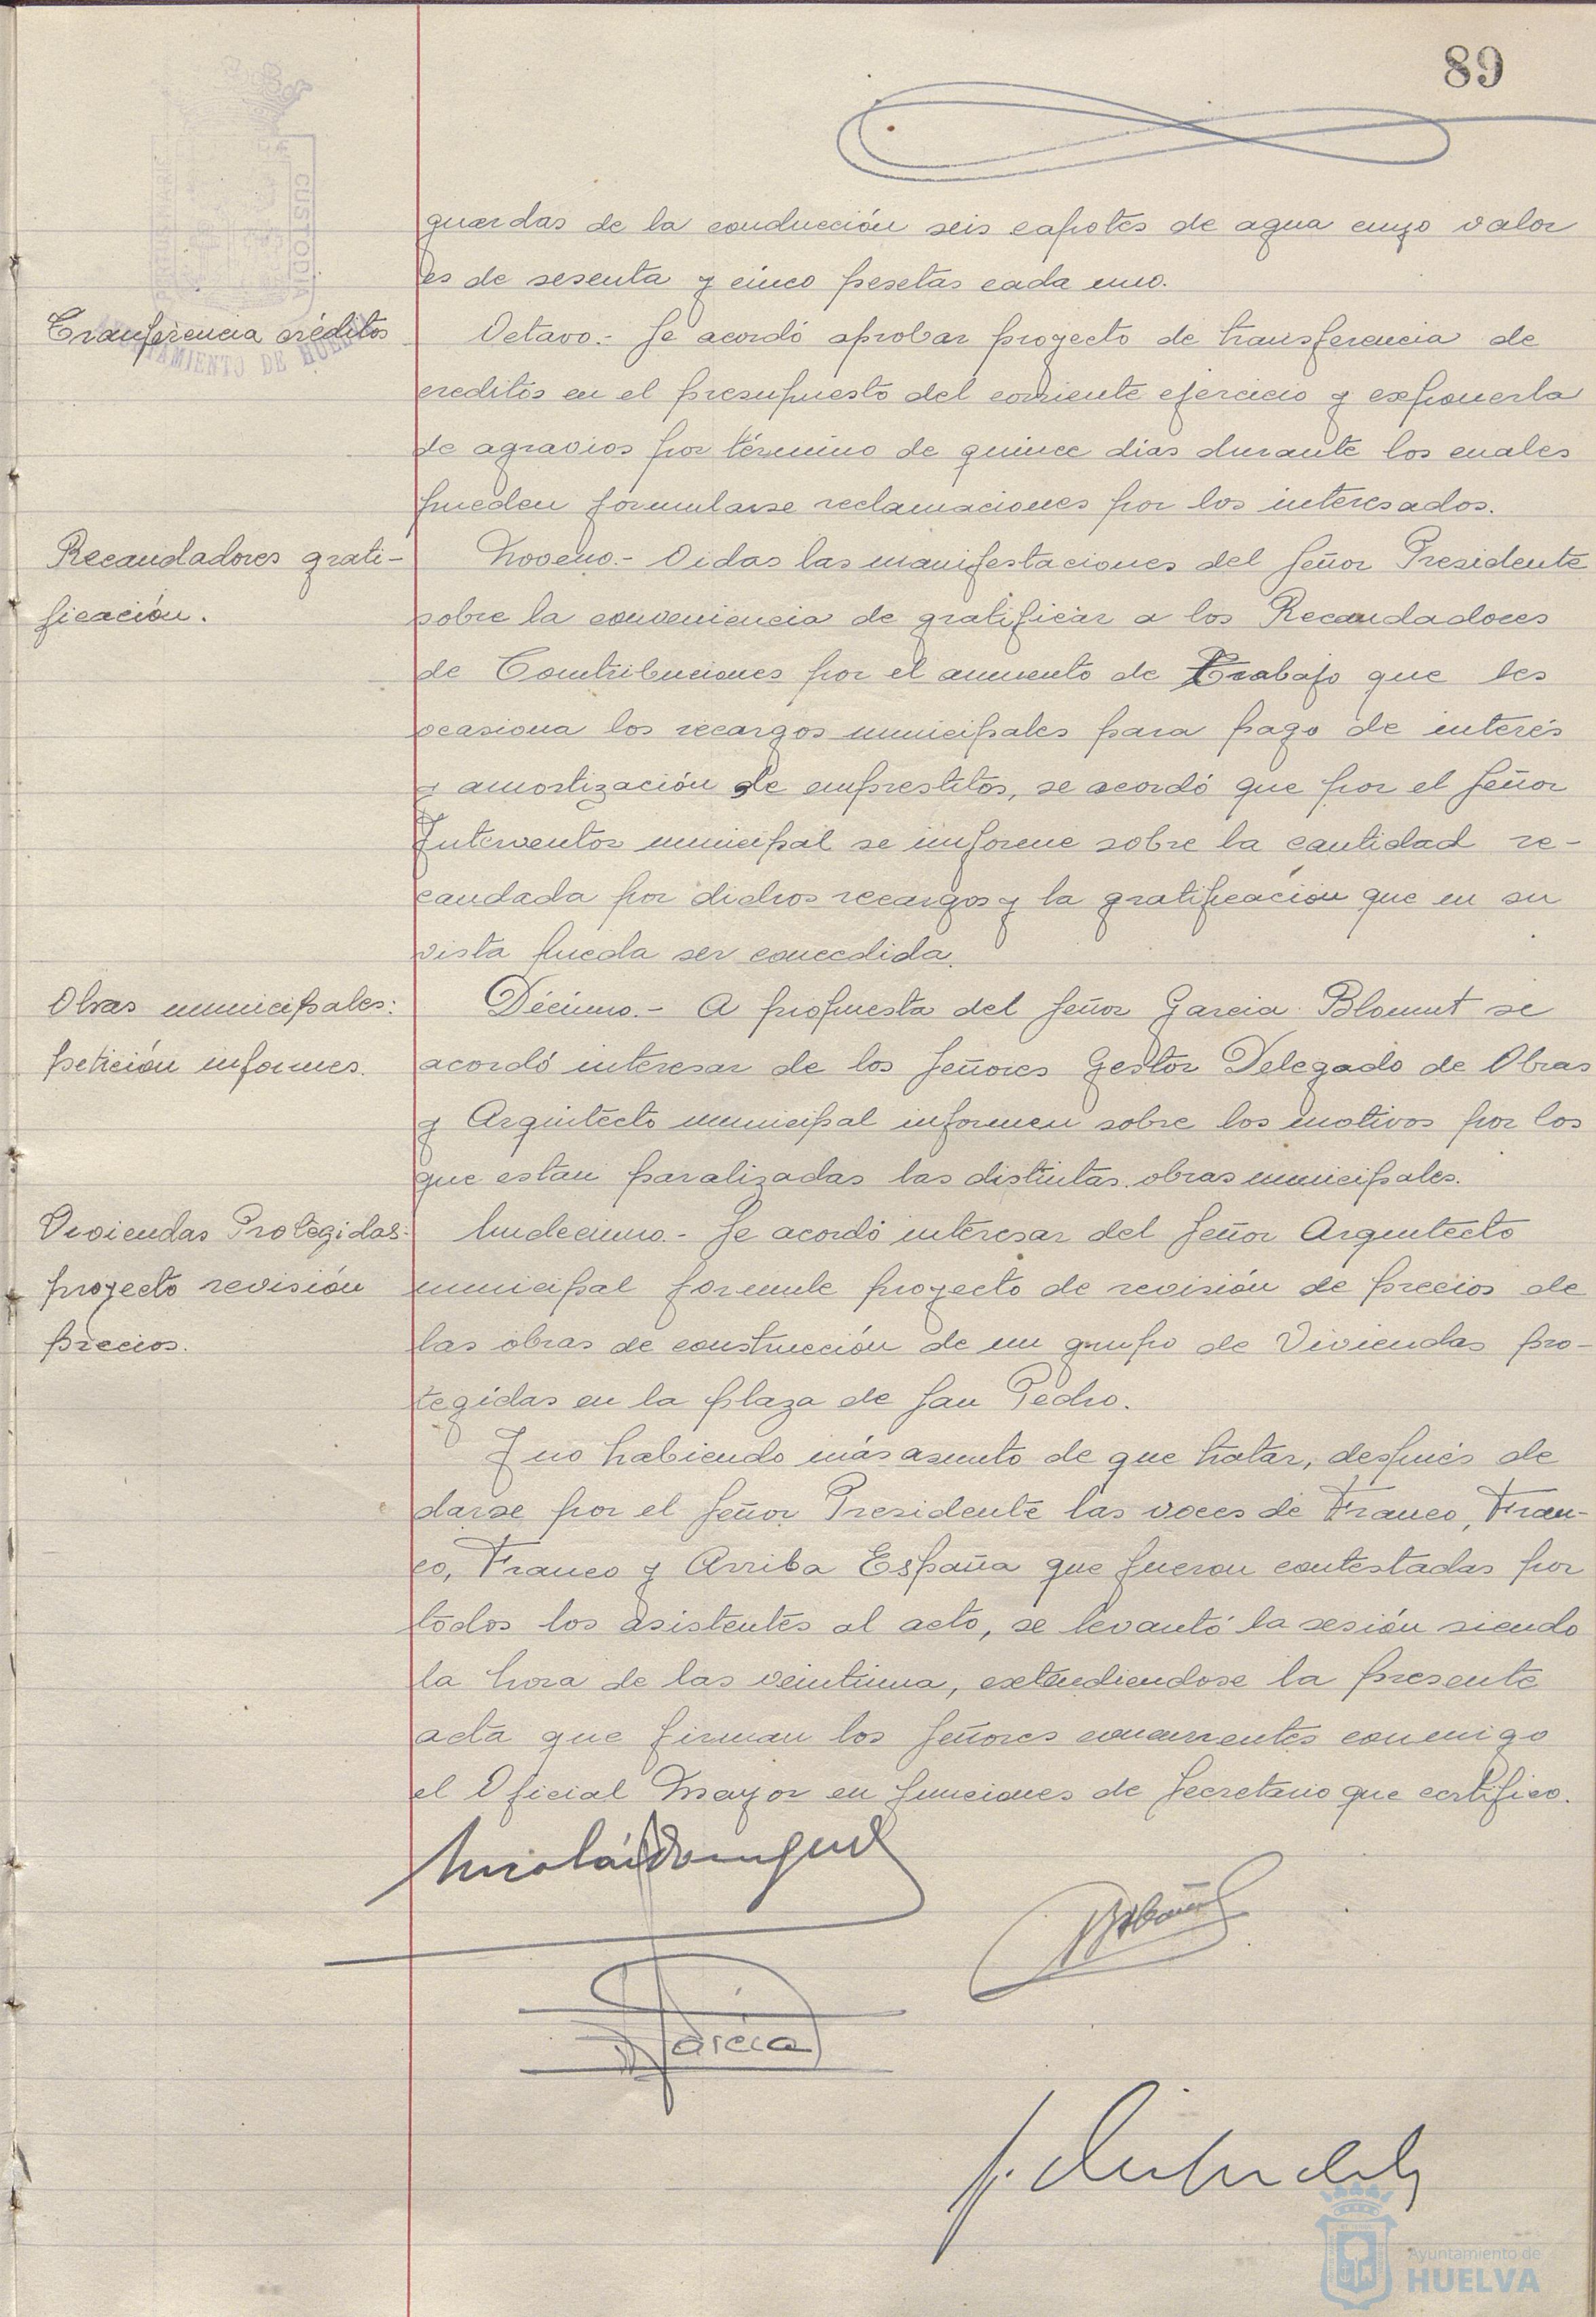 89
guardas de la conducción seis capotes de agua cuyo valor
es de sesenta y cinco pesetas cada uno.
Transferencia créditos
Octavo.- Se acordó aprobar proyecto de transferencia de
creditos en el presupuesto del corriente ejercicio y exponerla
de agravios por término de quince dias durante los cuales
pueden formularse reclamaciones por los interesados.
Recaudadores grati-
ficación.
Noveno.- Oidas las manifestaciones del Señor Presidente
sobre la conveniencia de gratificar a los Recaudadores
de Contribuciones por el aumento de Trabajo que les
ocasiona los recargos municipales para pago de interés
y amortización de emprestitos, se acordó que por el Señor
Interventor municipal se informe sobre la cantidad re-
caudada por dichos recargos y la gratificación que en su
vista pueda ser concedida.
Obras municipales:
petición informes.
Décimo.- A propuesta del Señor Garcia Blomut se
acordó interesar de los Señores Gestor Delegado de Obras
y Arquitecto municipal informen sobre los motivos por los
que estan paralizadas las distintas obras municipales.
Viviendas Protegidas:
proyecto revisión
precios.
Undecimo.- Se acordó interesar del Señor Arquitecto
municipal formule proyecto de revisión de precios de
las obras de construcción de un grupo de Viviendas pro-
tegidas en la plaza de San Pedro.
Y no habiendo más asunto de que tratar, después de
darse por el Señor Presidente las voces de Franco, Fran-
co, Franco y Arriba España que fueron contestadas por
todos los asistentes al acto, se levantó la sesión siendo
la hora de las veintiuna, extendiendose la presente
acta que firman los Señores concurrentes conmigo
el Oficial Mayor en funciones de Secretario que certifico.
Garcia
AYUNTAMIENTO DE HUELVA
CUSTODIA
Ayuntamiento de
HUELVA